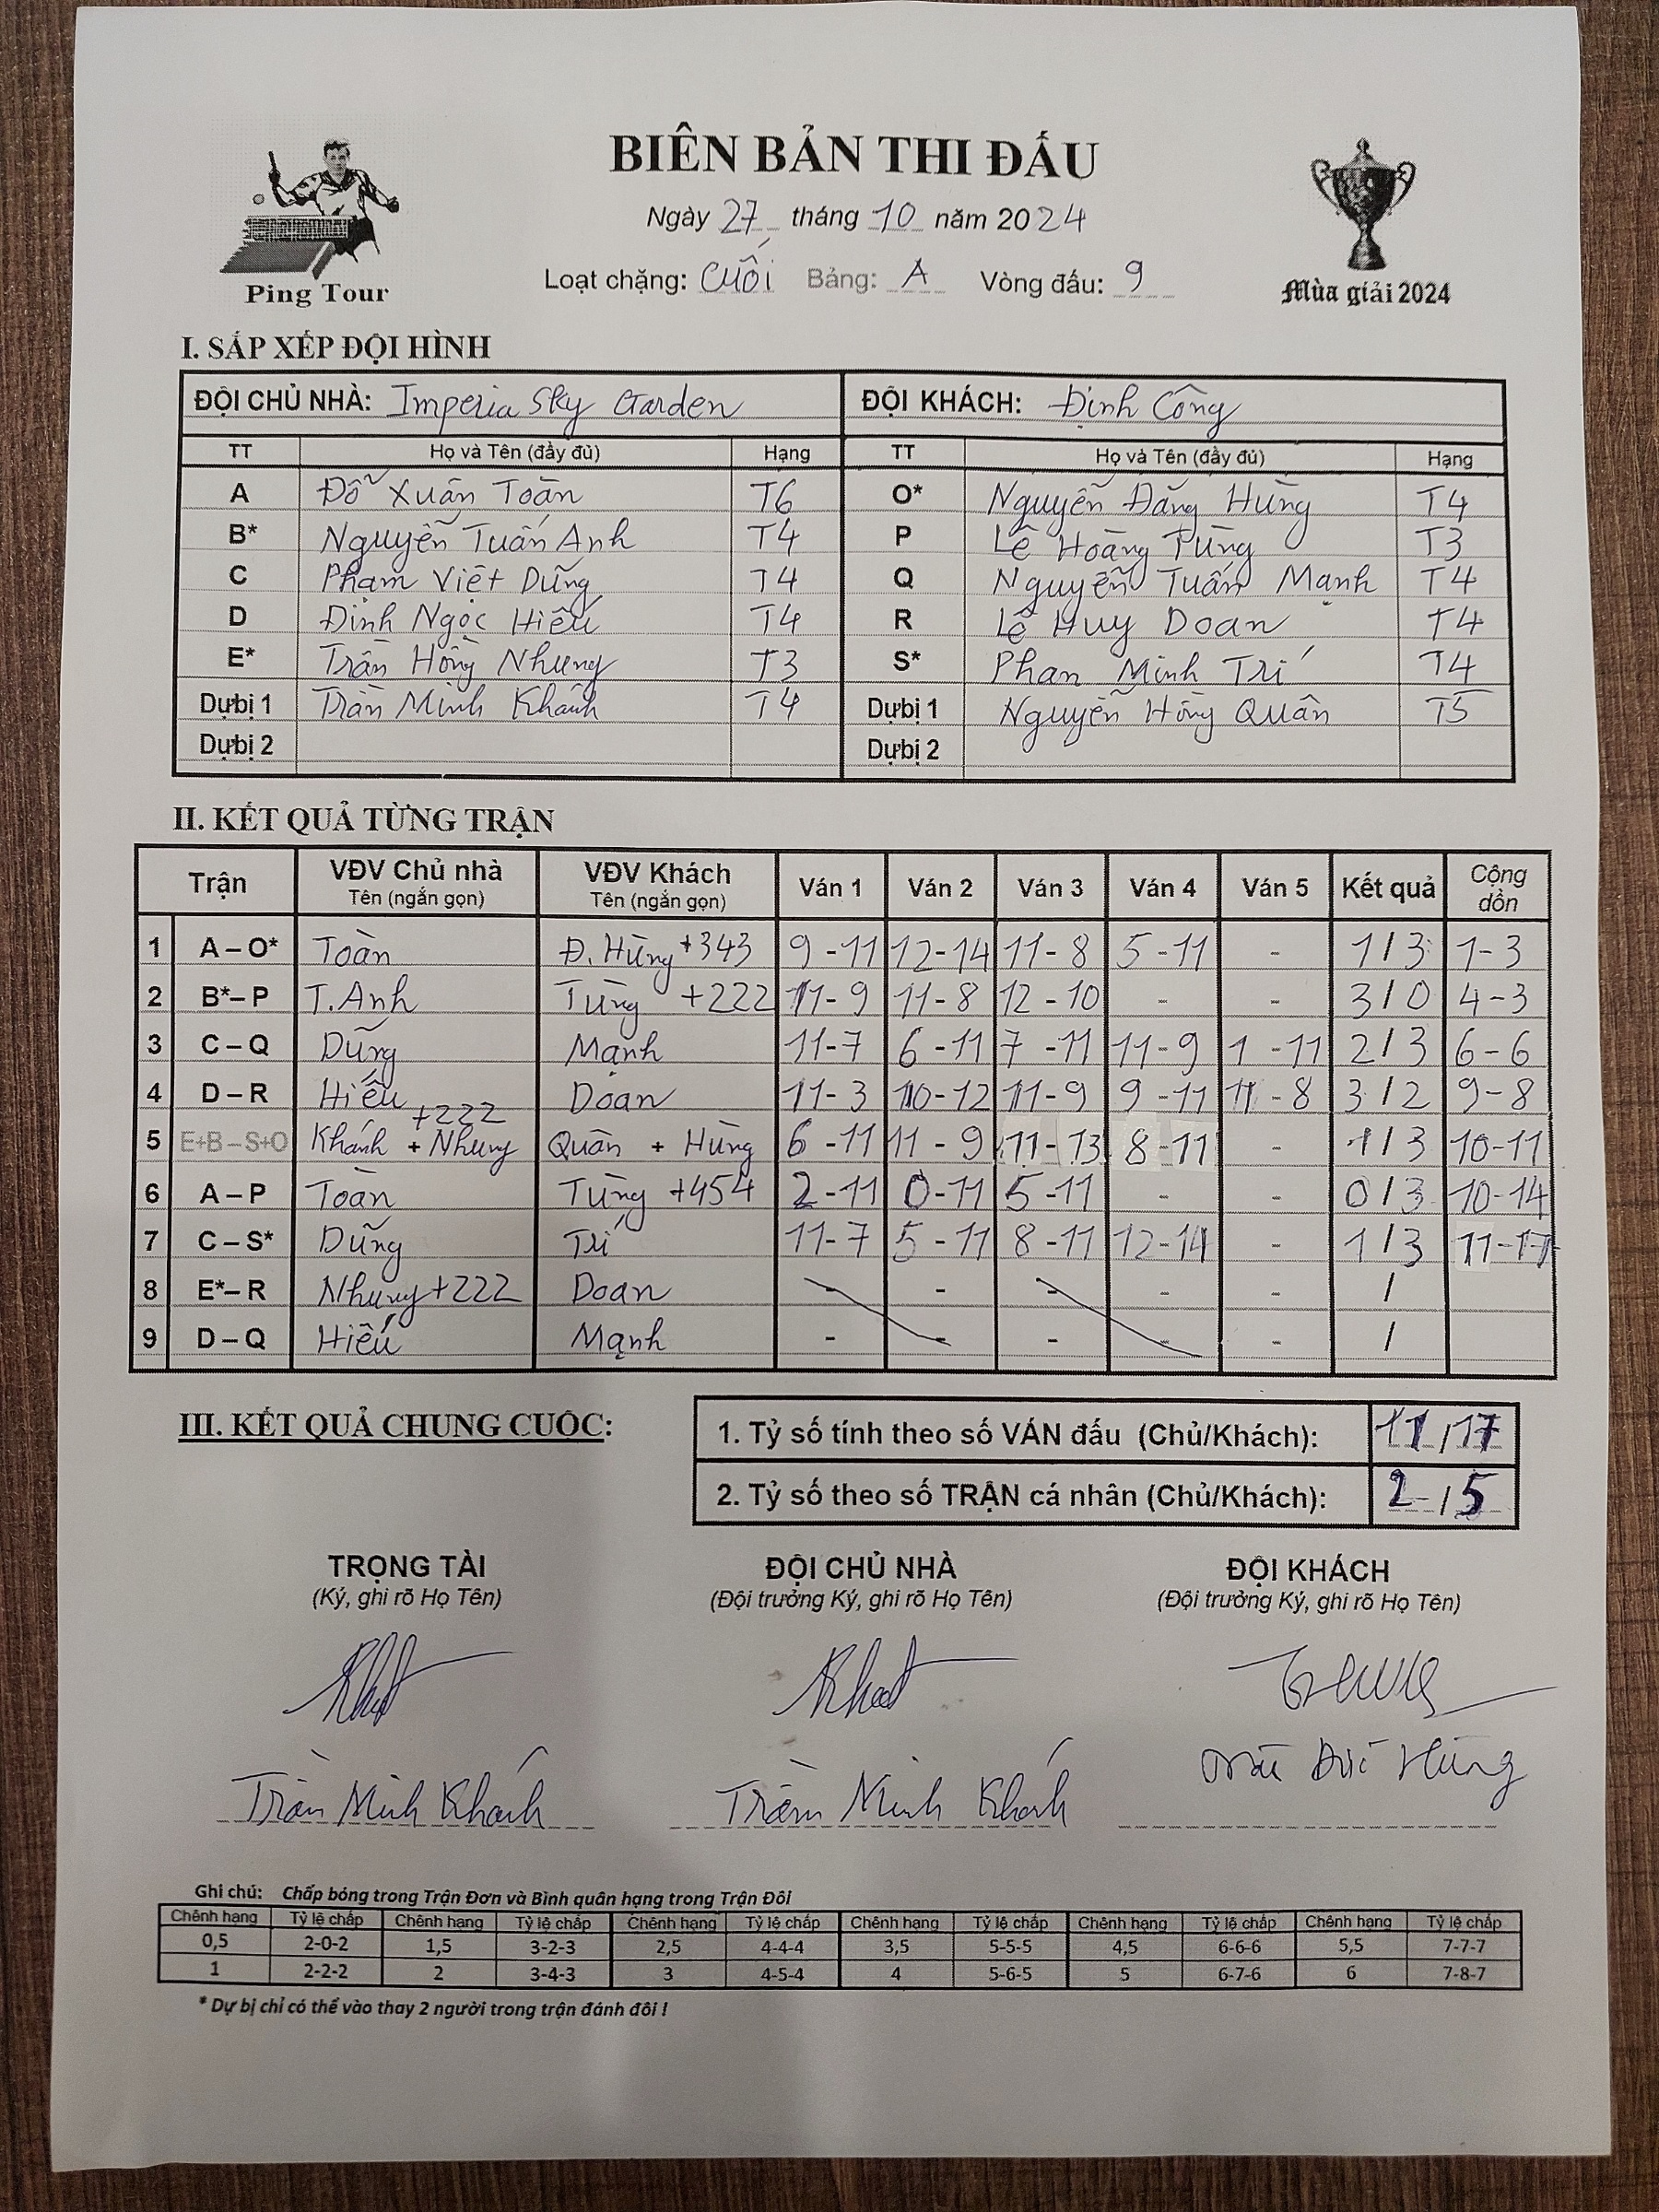 BIÊN BẢN THI ĐẤU
Ngày 27 tháng 10 năm 2024
Loạt chặng: Cuối Bảng: A Vòng đấu: 9
Ping Tour
Mùa giải 2024
I. SẮP XẾP ĐỘI HÌNH
ĐỘI CHỦ NHÀ: Imperia Sky Garden ĐỘI KHÁCH: Định Công
TT Họ và Tên (đầy đủ) Hạng TT Họ và Tên (đầy đủ) Hạng
A Đỗ Xuân Toàn T6 O* Nguyễn Đăng Hùng T4
B* Nguyễn Tuấn Anh T4 P Lê Hoàng Tùng T3
C Phạm Việt Dũng T4 Q Nguyễn Tuấn Mạnh T4
D Đinh Ngọc Hiếu T4 R Lê Huy Doan T4
E* Trần Hồng Nhung T3 S* Phan Minh Trí T4
Dự bị 1 Trần Minh Khánh T4 Dự bị 1 Nguyễn Hồng Quân T5
Dự bị 2 Dự bị 2
II. KẾT QUẢ TỪNG TRẬN
Trận VĐV Chủ nhà VĐV Khách Ván 1 Ván 2 Ván 3 Ván 4 Ván 5 Kết quả Cộng dồn
Tên (ngắn gọn) Tên (ngắn gọn)
1 A – O* Toàn Đ. Hùng +343 9 - 11 12 - 14 11 - 8 5 - 11 - 1 / 3 1 - 3
2 B* – P T. Anh Tùng +222 11 - 9 11 - 8 12 - 10 - - 3 / 0 4 - 3
3 C – Q Dũng Mạnh 11 - 7 6 - 11 7 - 11 11 - 9 1 - 11 2 / 3 6 - 6
4 D – R Hiếu Doan 11 - 3 10 - 12 11 - 9 9 - 11 11 - 8 3 / 2 9 - 8
5 E+B – S+O Khánh + Nhung +222 Quân + Hùng 6 - 11 11 - 9 11 - 13 8 - 11 - 1 / 3 10 - 11
6 A – P Toàn Tùng +454 2 - 11 0 - 11 5 - 11 - - 0 / 3 10 - 14
7 C – S* Dũng Trí 11 - 7 5 - 11 8 - 11 12 - 14 - 1 / 3 11 - 17
8 E* – R Nhung +222 Doan - - - - - /
9 D – Q Hiếu Mạnh - - - - - /
III. KẾT QUẢ CHUNG CUỘC:
1. Tỷ số tính theo số VÁN đấu (Chủ/Khách): 11 / 17
2. Tỷ số theo số TRẬN cá nhân (Chủ/Khách): 2 / 5
TRỌNG TÀI ĐỘI CHỦ NHÀ ĐỘI KHÁCH
(Ký, ghi rõ Họ Tên) (Đội trưởng Ký, ghi rõ Họ Tên) (Đội trưởng Ký, ghi rõ Họ Tên)
Trần Minh Khánh Trần Minh Khánh Hùng
Ghi chú: Chấp bóng trong Trận Đơn và Bình quân hạng trong Trận Đôi
Chênh hạng Tỷ lệ chấp Chênh hạng Tỷ lệ chấp Chênh hạng Tỷ lệ chấp Chênh hạng Tỷ lệ chấp Chênh hạng Tỷ lệ chấp Chênh hạng Tỷ lệ chấp
0,5 2-0-2 1,5 3-2-3 2,5 4-4-4 3,5 5-5-5 4,5 6-6-6 5,5 7-7-7
1 2-2-2 2 3-4-3 3 4-5-4 4 5-6-5 5 6-7-6 6 7-8-7
* Dự bị chỉ có thể vào thay 2 người trong trận đánh đôi !